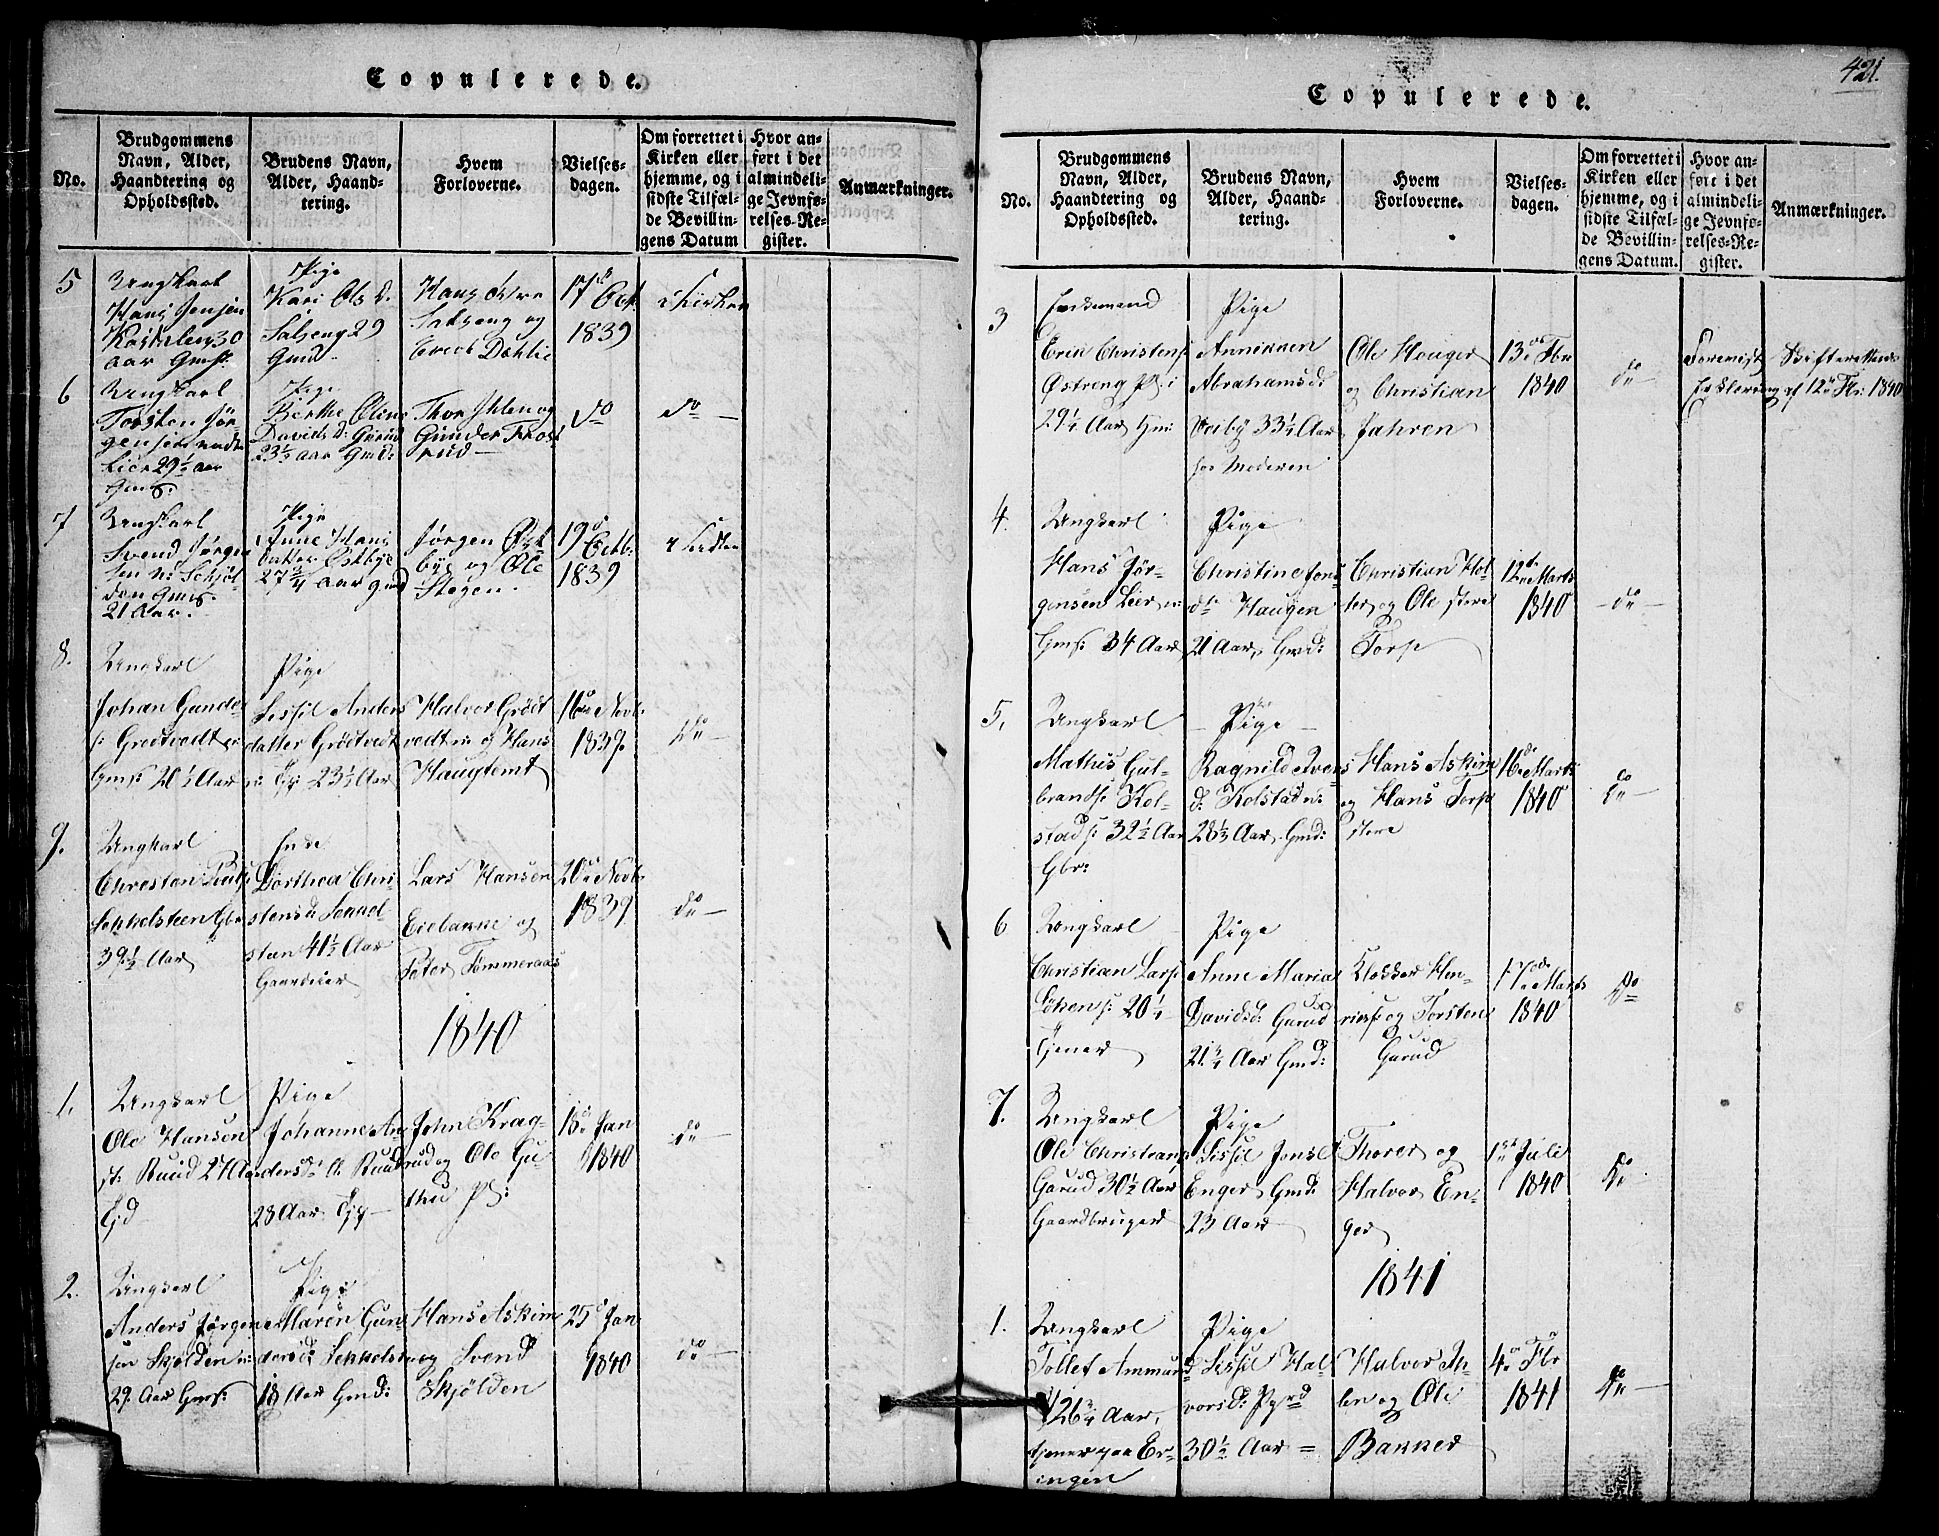 Copulerede.
No.
Brudgommens
Navn, Alder,
Haandtering og
Opholdssted.
Brudens Navn,
Alder, Haand-
tering.
Hvem
Forloverne.
Vielses-
dagen.
Om forrettet i
Kirken eller
hjemme, og i
sidste Tilfæl-
de Bevillin-
gens Datum
Hvor an-
ført i det
almindeli-
ge Jevnfø-
relses-Re-
gister.
Anmærkninger.
5
Ungkarl
Hans Jensen
30
aar Gmsf:
Pige
Kari Ols D.
Salseng 29
Gmd.
Hans østre
Salseng og
Dæhlie
17de Oct.
1839
i Kirken
6
Ungkarl
Torsten Jør-
gensen
Lier 29½ aar
Gms:
Pige
Berthe Oline
Davids D: Garud
23½ aar Gmd:
Thor Ihlen og
Gunder Frøs
rud
Do
do
7
Ungkarl
Svend Jørgen
sen n: Skjøl
den Gms.
21 Aar.
Pige
Anne Hans
datter Østbye
27¾ aar Gmd
Jørgen Øst
bye og Ole
Stegen.
19de Octb:
1839
8.
Ungkarl
Johan Gunder
s: Grødtvedt n:
Gmsf: 20½ Aar
Pige
Sissil Anders
datter Grødtvedt
n: 23½ Aar
Halvor Grødt
vedt n: og Hans
Haugtomt
16de Novb:
1839.
do
9.
Ungkarl
Christen
Sekkelsteen Gbr
39½ Aar
Enke
Dorthea Chri-
stensd: Sekkel-
steen 41½ Aar
Gaardeier
Lars Hansen
Eiebakke og
Peter Tømmeraas
20de Novb:
1839
do
1840
1.
Ungkarl
Ole Hansen
st: Ruud 27 Aar
Gjd
Pige
Johanne An-
dersd: n. Ruud
28 Aar
John Krag-
rud og Ole Gu-
thu Pl:
18de Jan
1840
do
2.
Ungkarl
Anders Jørgen
sen Skjolden n:
29. Aar Gmsf:
Pige
Maren Gun
dersd: Sekkelsten
18 Aar Gmd:
Hans Askim
og Svend
Skjolden
25de Jan
1840
do
Copulerede.
421.
No.
Brudgommens
Navn, Alder,
Haandtering og
Opholdssted.
Brudens Navn,
Alder, Haand-
tering.
Hvem
Forloverne.
Vielses-
dagen.
Om forrettet i
Kirken eller
hjemme, og i
sidste Tilfæl-
de Bevillin-
gens Datum.
Hvor an-
ført i det
almindeli-
ge Jevnfø-
relses-Re-
gister.
Anmærkninger.
3
Enkemand
Erik Christens:
Østreng Pl: i
29¼ Aar Hm:
Pige
Annikken
Abrahamsd:
33¼ Aar
hos Moderen
Ole Houger
og Christian
Jahren
13de Fbr
1840
do
Forevist Skifterettens
Erklæring af 12te Fbr: 1840
4.
Ungkarl
Hans Jør-
gensen Lier n:
Gmsf: 34 Aar
Pige
Christine Jens
dtr Haugen
21 Aar, Gmd:
Christian Hol-
ter og Ole store
Torp
12de Marts
1840
do
5.
Ungkarl
Mathis Gul-
brands: Kol-
stad s: 32½ Aar
Gbr:
Pige
Ragnild Ivers
d: Kolstad n:
28½ Aar Gmd:
Hans Askim
og Hans Torp
store
16de Marts
1840
do
6
Ungkarl
Christian Lars:
Løken s: 20¼
tjener
Pige
Anne Maria
Davidsd: Garud
21¾ Aar Gmd:
Klokker Hen-
riksf og Torsten
Garud
17de Marts
1840
do
7.
Ungkarl
Ole Christians
Garud 30½ Aar
Gaardbruger
Pige
Sissil Jensd
Enger Gmd:
23 Aar
Thorer og
Halvor En-
ger
1ste Juli
1840
do
1841
1.
Ungkarl
Tollef Ammun
26¾ Aar,
tjener paa Er-
ingen
Pige
Sissil Hal
vorsd:
30½ Aar
Halvor Ih-
len og Ole
Bakker
4de Fbr
1841
do